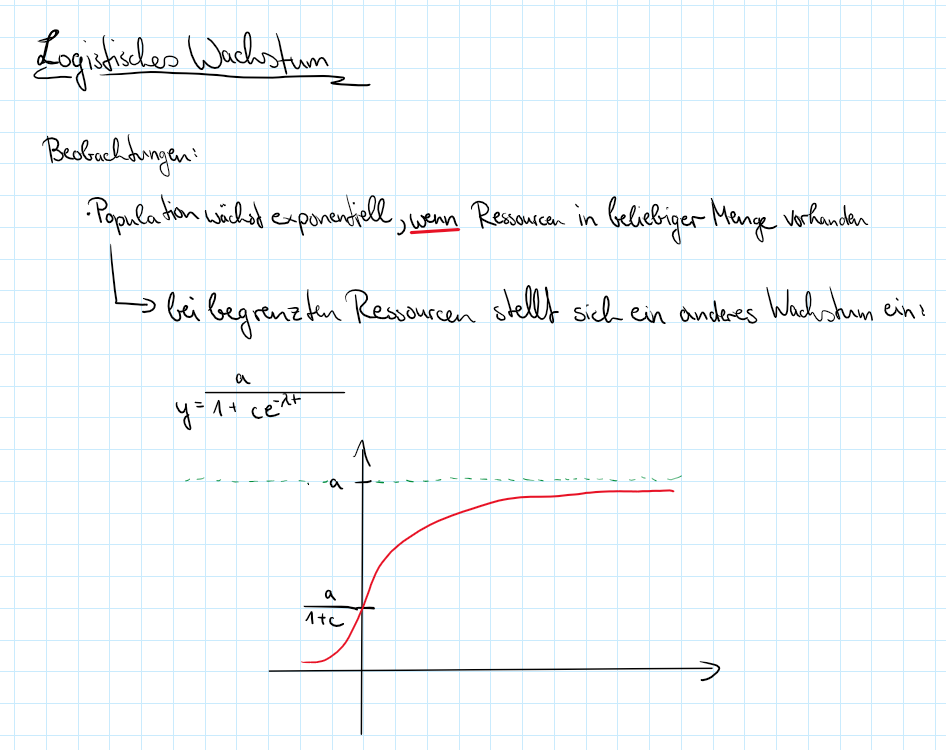 Logistisches Wachstum
Beobachtungen:
· Population wächst exponentiell, wenn Ressourcen in beliebiger Menge vorhanden
↳ bei begrenzten Ressourcen stellt sich ein anderes Wachstum ein:
y = a / (1 + ce^{-λt})
a
a / (1+c)